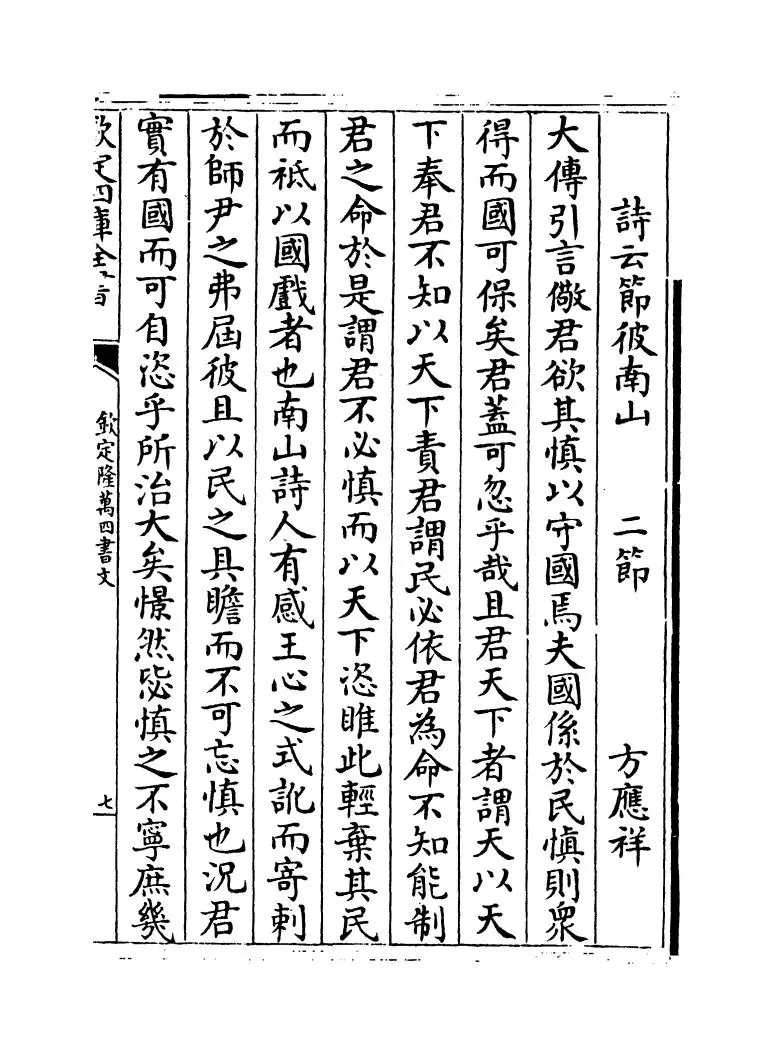 詩云節彼南山 二節 方應祥
大傳引言儆君欲其慎以守國焉夫國係於民慎則衆
得而國可保矣君蓋可忽乎哉且君天下者謂天以天
下奉君不知以天下責君謂民必依君為命不知能制
君之命於是謂君不必慎而以天下恣睢此輕棄其民
而祗以國戲者也南山詩人有感王心之式訛而寄刺
於師尹之弗屆彼且以民之具瞻而不可忘慎也況君
實有國而可自恣乎所治大矣憬然毖慎之不寧庶幾
欽定四庫全書
欽定隆萬四書文
七